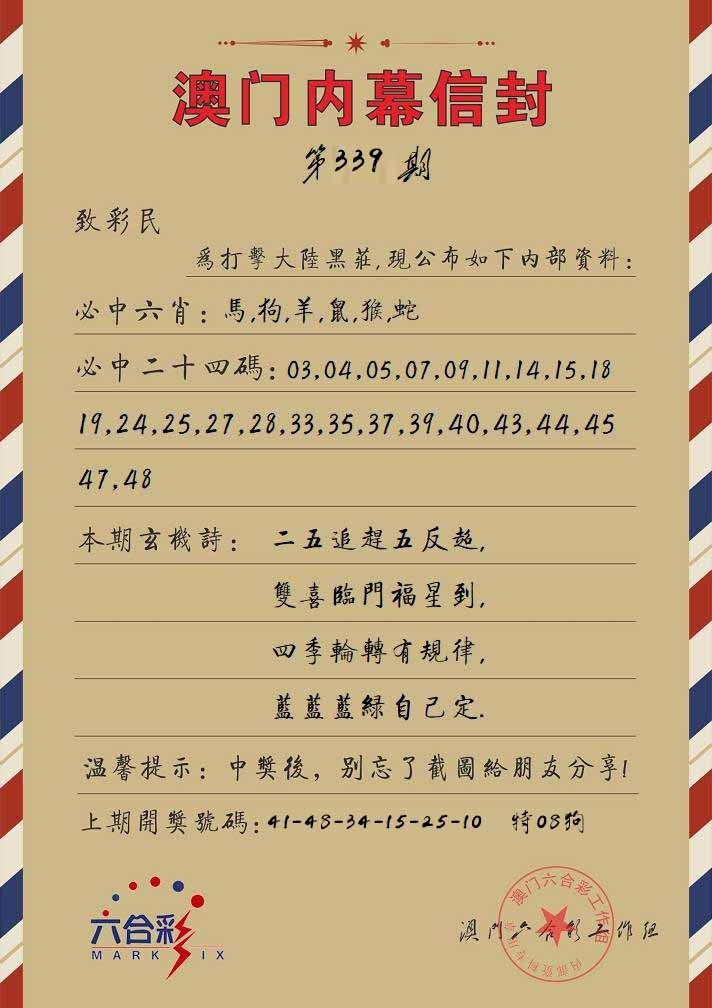 澳门内幕信封
第339期
致彩民
爲打擊大陸黑莊,現公布如下内部資料:
必中六肖:馬,狗,羊,鼠,猴,蛇
必中二十四碼:03,04,05,07,09,11,14,15,18
19,24,25,27,28,33,35,37,39,40,43,44,45
47,48
本期玄機詩: 二五追趕五反超,
雙喜臨門福星到,
四季輪轉有規律,
藍藍藍緑自己定.
温馨提示:中獎後,别忘了截圖給朋友分享!
上期開獎號碼:41-48-34-15-25-10 特08狗
六合彩
MARK SIX
澳门六合彩工作组
澳门六合彩工作组
内部资料专用章